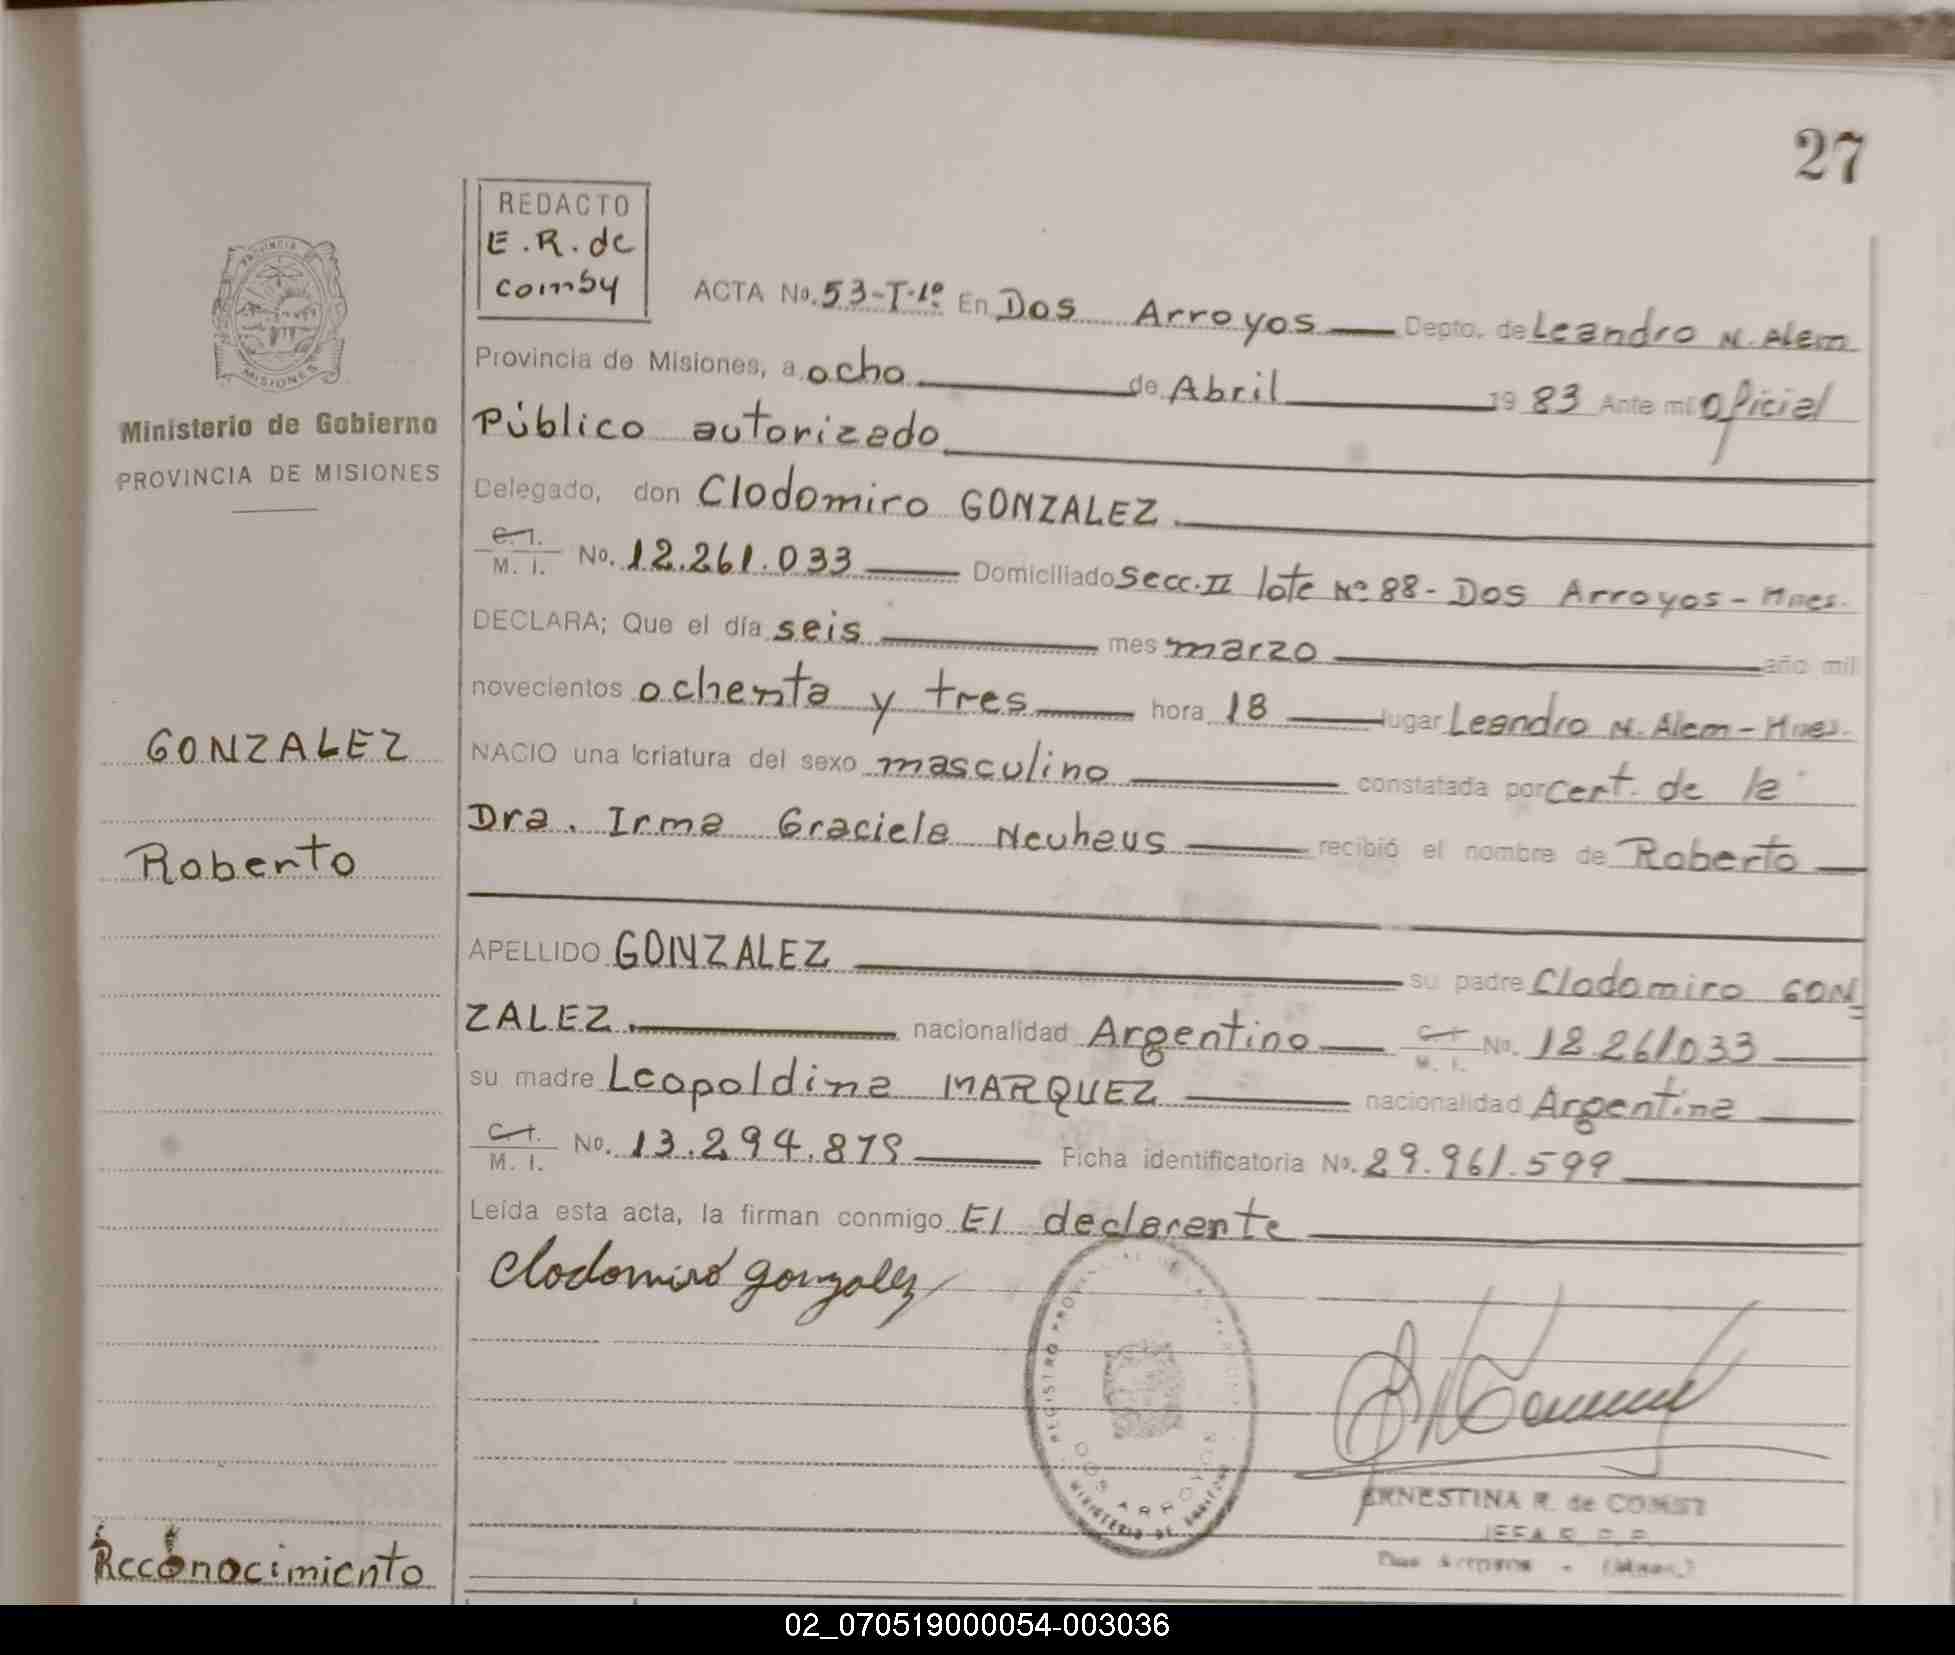 27
REDACTO
E.R. de
comby
PROVINCIA
MISIONES
Ministerio de Gobierno
PROVINCIA DE MISIONES
ACTA No. 53-T-1º En Dos Arroyos Depto. de Leandro N. Alem
Provincia de Misiones, a ocho de Abril 1983 Ante mí Oficial
Público autorizado
Delegado, don Clodomiro GONZALEZ.
C.I.
M. I. No. 12.261.033 Domiciliado Secc. II lote Nº 88 - Dos Arroyos - Mnes.
DECLARA; Que el día seis mes marzo año mil
novecientos ochenta y tres hora 18 lugar Leandro N. Alem - Mnes.
NACIO una criatura del sexo masculino constatada por cert. de la
Dra. Irma Graciela Neuhaus recibió el nombre de Roberto
APELLIDO GONZALEZ su padre Clodomiro GON
ZALEZ. nacionalidad Argentino C.I. M. I. No. 12.261.033
su madre Leopoldina MARQUEZ nacionalidad Argentina
C.I.
M. I. No. 13.294.879 Ficha identificatoria No. 29.961.599
Leída esta acta, la firman conmigo El declarente
Clodomiro gonzalez
GONZALEZ
Roberto
Reconocimiento
REGISTRO
DOS ARROYOS
MINISTERIO DE GOBIERNO
ERNESTINA R. de COMBY
JEFA R. P. P.
Dos Arroyos - (Mnes.)
02_070519000054-003036